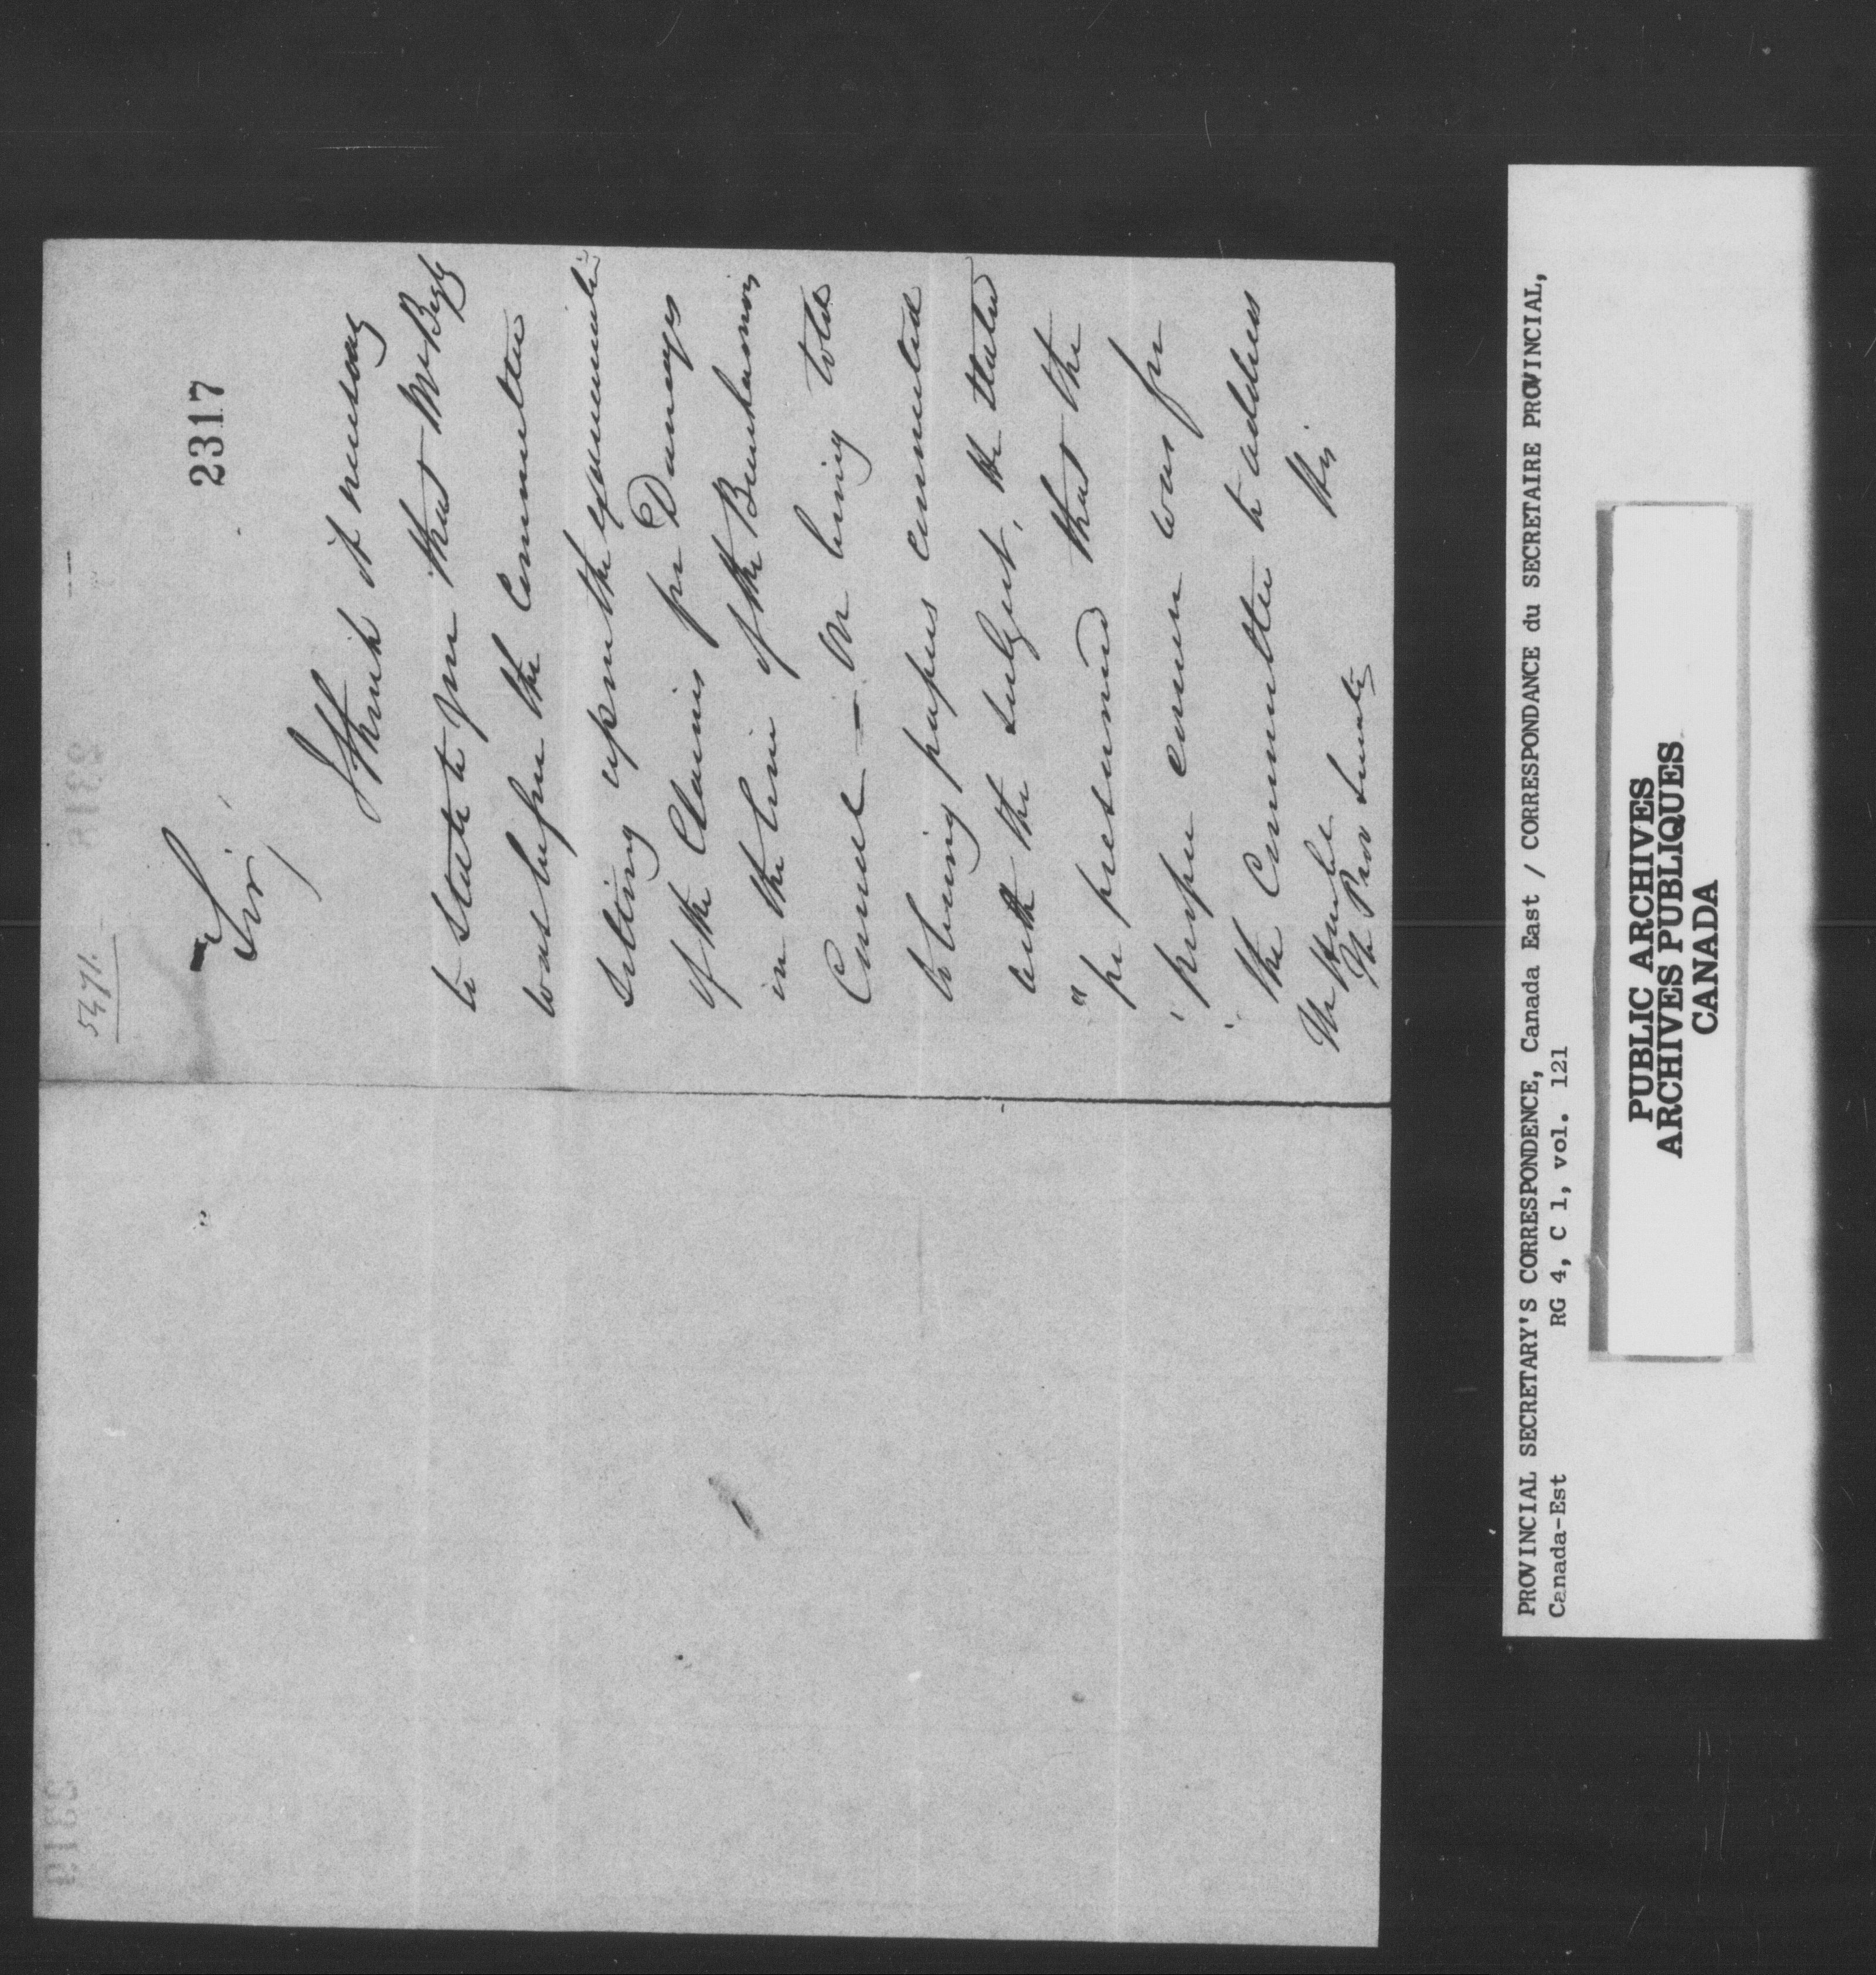 5471.
2317
Sir,
I think it necessary
to State to you that Mr Begly
was before the Committee
sitting upon the examination
of the Claims for Damages
in the line of the Beauharnois
Canal — On being told
to bring papers connected
with the subject, he stated
"he presumed that the
"proper course was for
"the Committee to address
The Honble
The Prov Secretary
this
PROVINCIAL SECRETARY'S CORRESPONDENCE, Canada East / CORRESPONDANCE du SECRETAIRE PROVINCIAL,
Canada-Est RG 4, C 1, vol. 121
PUBLIC ARCHIVES
ARCHIVES PUBLIQUES
CANADA